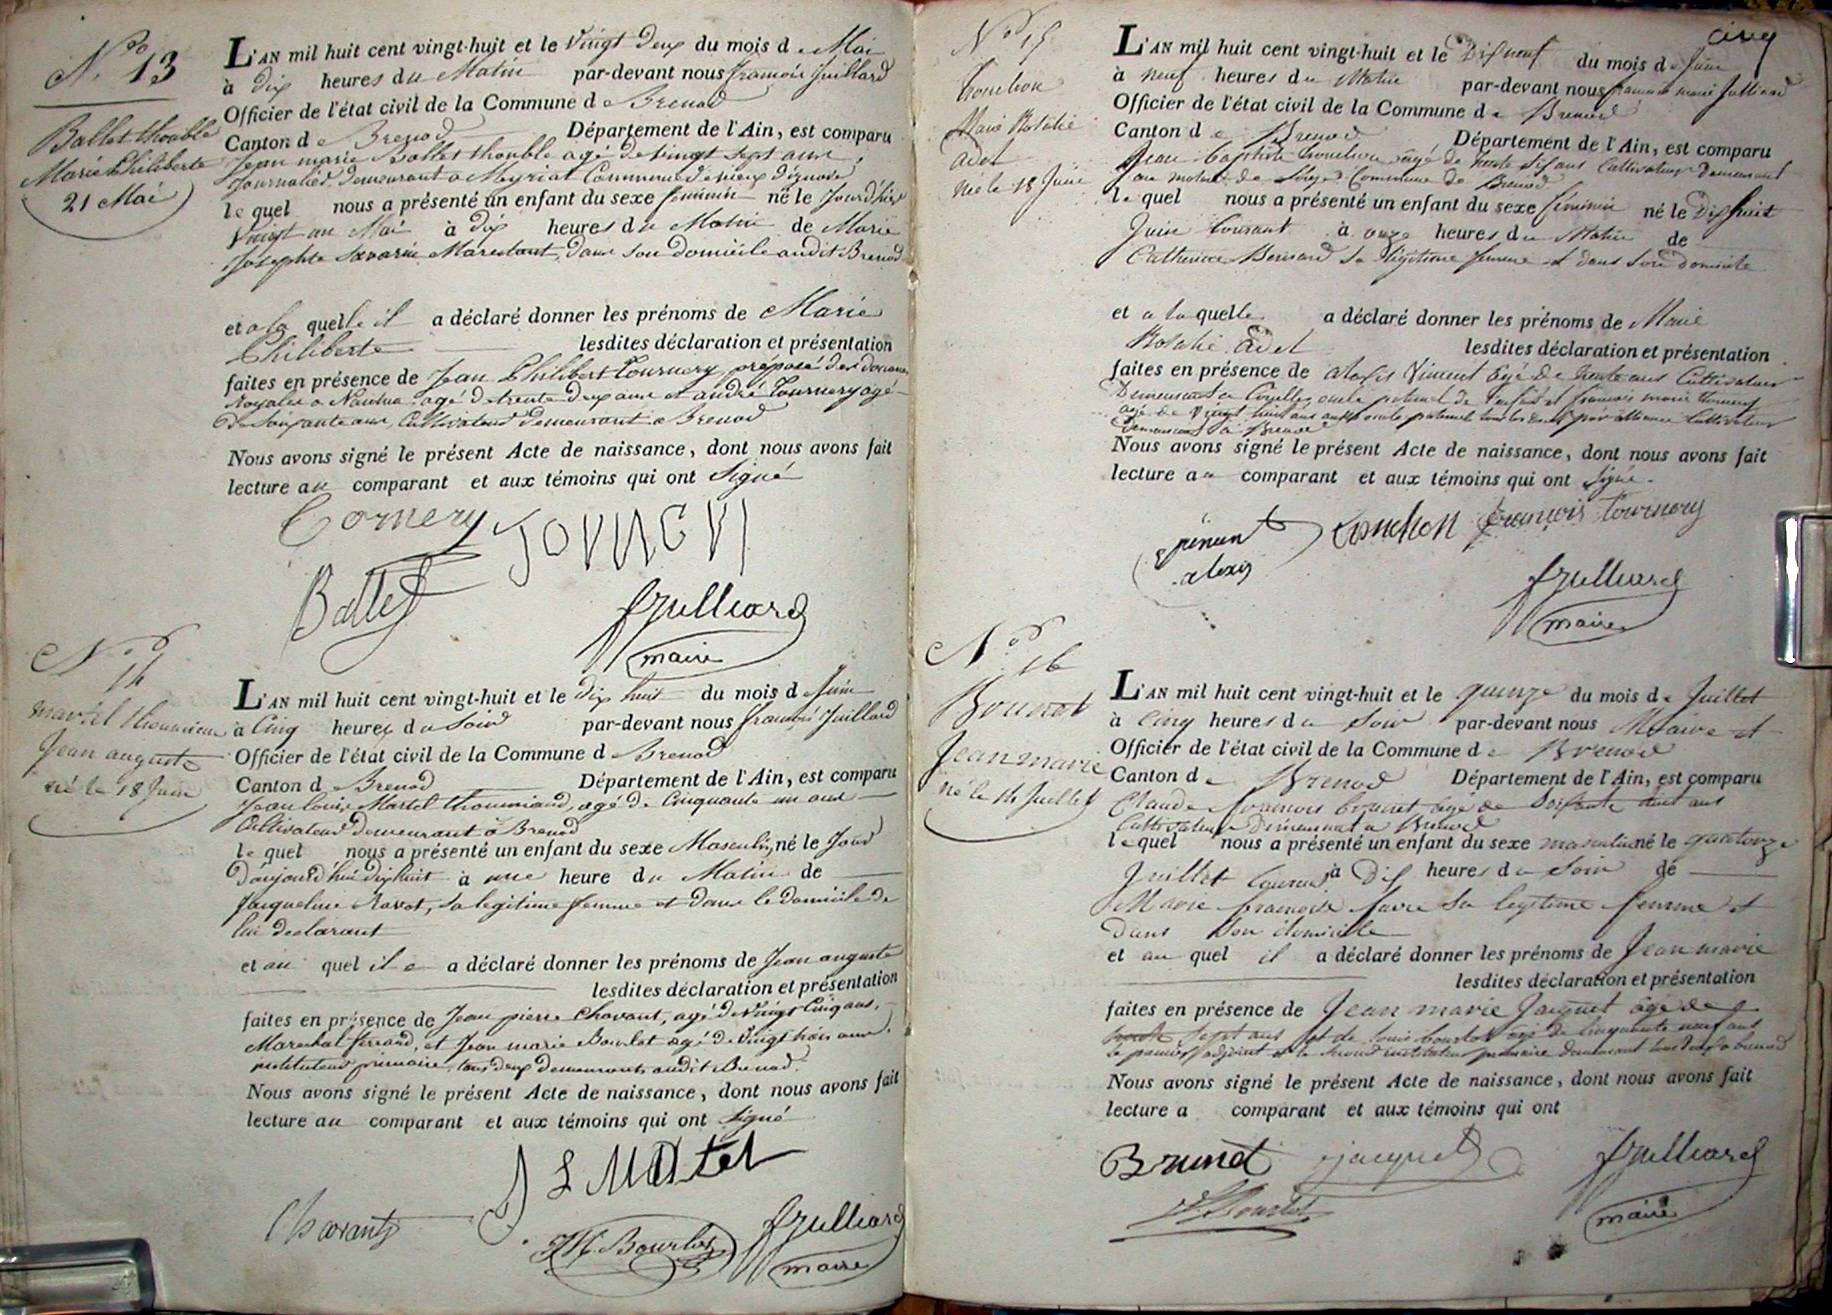 N.º 13
Ballet thouble
Marie Philiberte
21 Mai
L'AN mil huit cent vingt-huit et le vingt deux du mois de Mai
à dix heures du Matin par-devant nous françois Juillard
Officier de l'état civil de la Commune de Brenod
Canton de Brenod Département de l'Ain, est comparu
Jean marie Ballet thouble agé de vingt sept ans,
Journalier demeurant a Meyriat Commune de vieux d'izenave
lequel nous a présenté un enfant du sexe feminin né le Jour d'hier
vingt un Mai à dix heures du Matin de Marie
Josephte Savarin Marestant, dans son domicile audit Brenod
et a la quelle il a déclaré donner les prénoms de Marie
Philiberte lesdites déclaration et présentation
faites en présence de Jean Philibert Tournery, préposé des douanes
Royales a Nantua agé de trente deux ans et andré Tournery agé
de Soixante ans, Cultivateur demeurant a Brenod
Nous avons signé le présent Acte de naissance, dont nous avons fait
lecture au comparant et aux témoins qui ont Signé
Tornery
Ballet
fjulliard
maire
N.º 14
martel thoumiand
Jean auguste
né le 18 Juin
L'AN mil huit cent vingt-huit et le dix huit du mois de Juin
à Cinq heures du Soir par-devant nous françois Juillard
Officier de l'état civil de la Commune de Brenod
Canton de Brenod Département de l'Ain, est comparu
Jean Louis Martel thoumiand, agé de Cinquante un ans
Cultivateur demeurant a Brenod
lequel nous a présenté un enfant du sexe Masculin né le Jour
d'aujourd'hui dix huit à une heure du Matin de
Jacqueline Ravot, sa legitime femme et dans le domicile de
lui declarant
et au quel il a déclaré donner les prénoms de Jean auguste
lesdites déclaration et présentation
faites en présence de Jean pierre Chavant, agé de vingt Cinq ans,
Marechal ferrand, et Jean marie Bourlot agé de vingt trois ans
instituteur primaire tous deux demeurants audit Brenod.
Nous avons signé le présent Acte de naissance, dont nous avons fait
lecture au comparant et aux témoins qui ont Signé
J L Martel
Chavant
JM Bourlot
fjulliard
maire
cinq
N.º 15
Tonchon
Marie Rosalie
adel
née le 18 Juin
L'AN mil huit cent vingt-huit et le Dix neuf du mois de Juin
à neuf heures du Matin par-devant nous françois marie Julliard
Officier de l'état civil de la Commune de Brenod
Canton de Brenod Département de l'Ain, est comparu
Jean Baptiste Tonchon âgé de trente Six ans Cultivateur Demeurant
au Commune de Brenod
lequel nous a présenté un enfant du sexe feminin né le Dix huit
Juin Courant à onze heures du Matin de
Catherine Bernard Sa légitime femme et dans Son domicile
et a la quelle a déclaré donner les prénoms de Marie
Rosalie Adel lesdites déclaration et présentation
faites en présence de alexis Vincent agé De trente ans Cultivateur
Demeurant a oncle paternel de l'enfant et francois marie Tournery
agé de Vingt huit ans aussi oncle paternel tous les deux par alliance Cultivateur
Demeurant à Brenod
Nous avons signé le présent Acte de naissance, dont nous avons fait
lecture au comparant et aux témoins qui ont Signé.
alexis
Tonchon
françois Tournery
fjulliard
maire
N.º 16
Brunet
Jean marie
né le 14 Juillet
L'AN mil huit cent vingt-huit et le quinze du mois de Juillet
à cinq heures du Soir par-devant nous Maire et
Officier de l'état civil de la Commune de Brenod
Canton de Brenod Département de l'Ain, est comparu
Claude francois brunet agé de ans
Cultivateur Demeurant a Brenod
lequel nous a présenté un enfant du sexe masculin né le quatorze
Juillet Courant à Dix heures du Soir de
Marie francoise favre Sa legitime femme et
dans Son domicile
et au quel il a déclaré donner les prénoms de Jean marie
lesdites déclaration et présentation
faites en présence de Jean marie Jacquet âgé de
trente Sept ans et de Louis bourlot agé de Cinquante neuf ans
le premier adjoint et le Second instituteur primaire demeurant tous deux a brenod
Nous avons signé le présent Acte de naissance, dont nous avons fait
lecture a comparant et aux témoins qui ont
Brunet
jacquet
fjulliard
Bourlot
maire